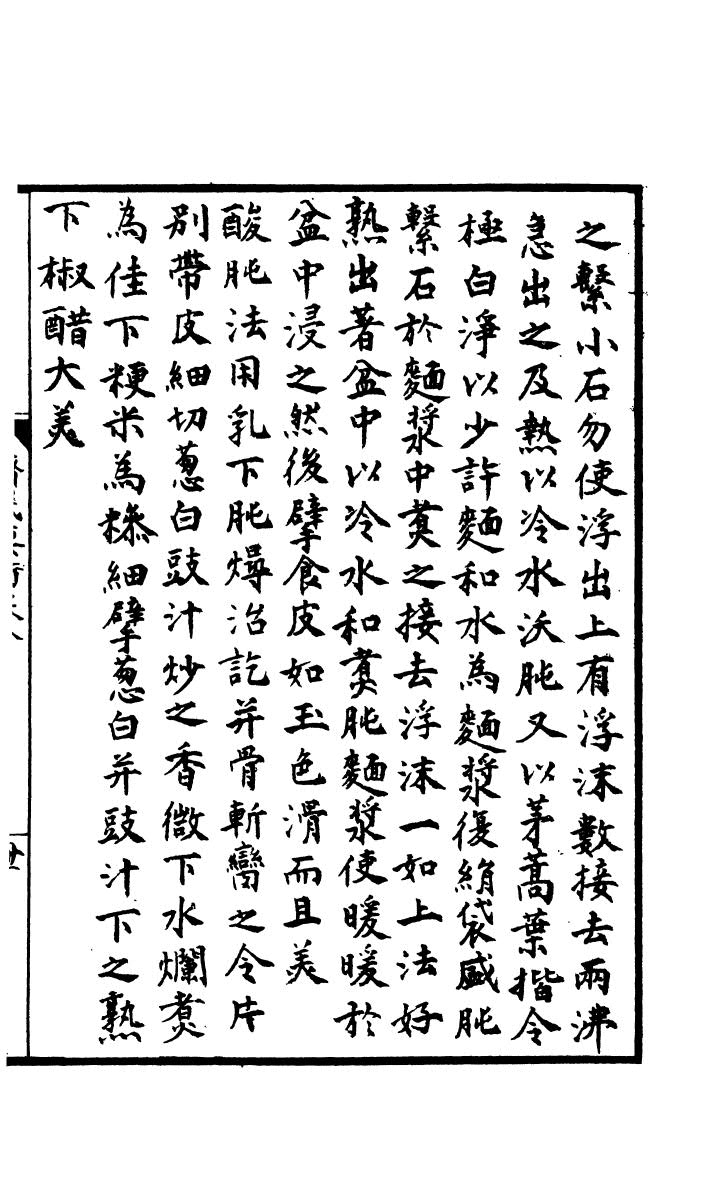 之繫小石勿使浮出上有浮沫數接去兩沸
急出之及熱以冷水沃肫又以茅蒿葉揩令
極白淨以少許麵和水為麵漿復絹袋盛肫
繫石於麵漿中煑之接去浮沫一如上法好
熟出著盆中以冷水和煑肫麵漿使暖暖於
盆中浸之然後擘食皮如玉色滑而且美
酸肫法用乳下肫燖治訖并骨斬臠之令片
別帶皮細切葱白豉汁炒之香微下水爛煑
為佳下粳米為糝細擘葱白并豉汁下之熟
下椒醋大美